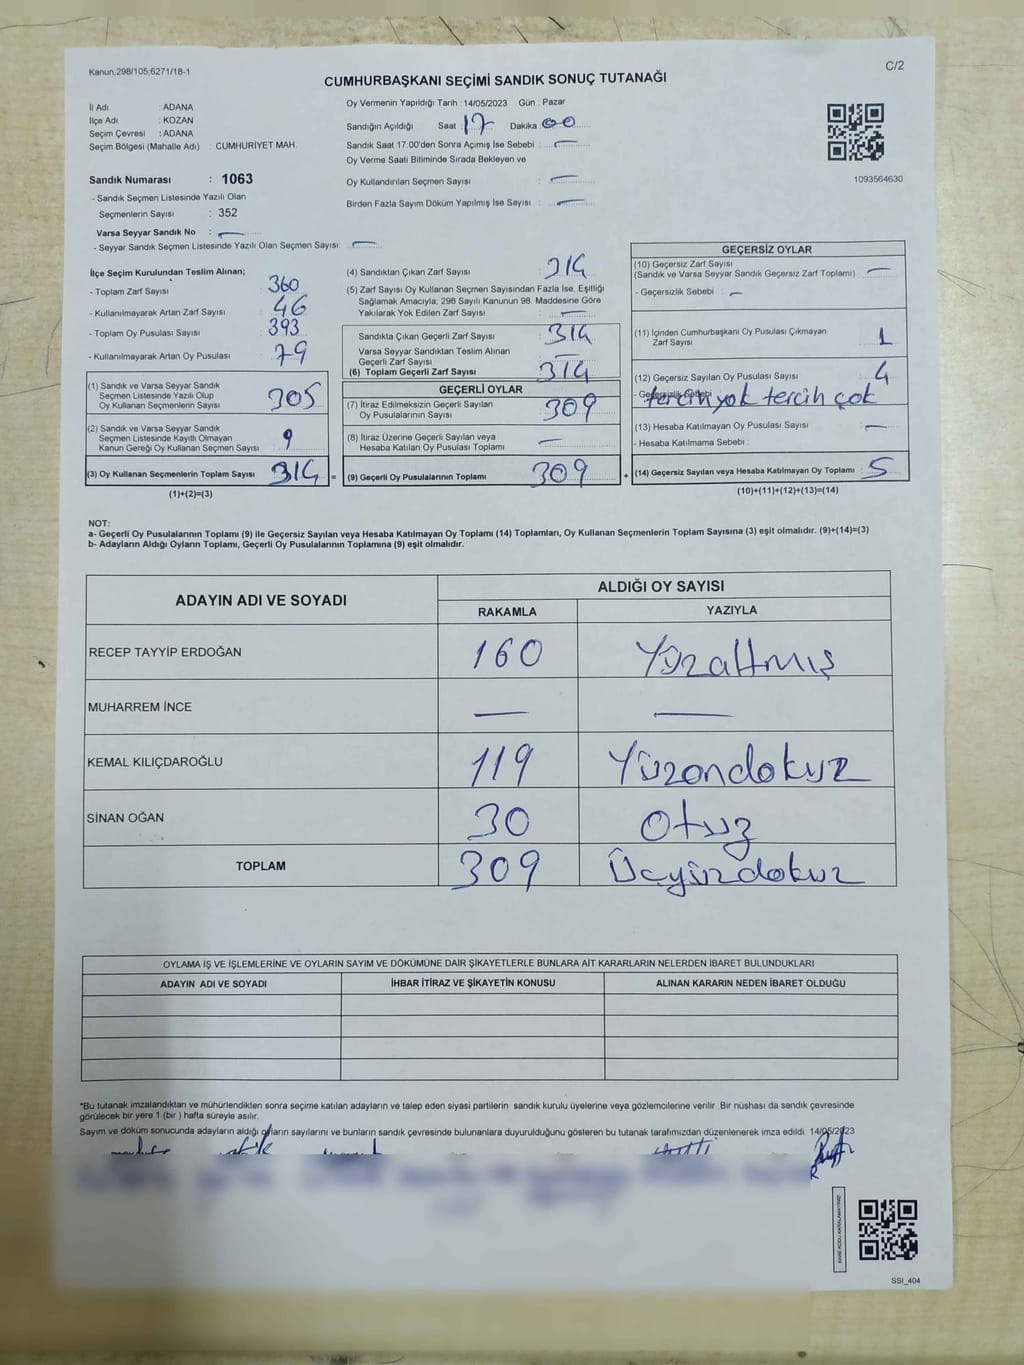 Kanun,298/105,6271/18-1
C/2
CUMHURBAŞKANI SEÇİMİ SANDIK SONUÇ TUTANAĞI
İl Adı : ADANA
İlçe Adı : KOZAN
Seçim Çevresi : ADANA
Seçim Bölgesi (Mahalle Adı) : CUMHURİYET MAH.
Oy Vermenin Yapıldığı Tarih : 14/05/2023 Gün : Pazar
Sandığın Açıldığı Saat : 17 Dakika 00
Sandık Saat 17:00'den Sonra Açımış İse Sebebi : —
Oy Verme Saati Bitiminde Sırada Bekleyen ve
Oy Kullandırılan Seçmen Sayısı : —
Birden Fazla Sayım Döküm Yapılmış İse Sayısı : —
1093564630
Sandık Numarası : 1063
- Sandık Seçmen Listesinde Yazılı Olan
Seçmenlerin Sayısı : 352
Varsa Seyyar Sandık No : —
- Seyyar Sandık Seçmen Listesinde Yazılı Olan Seçmen Sayısı: —
İlçe Seçim Kurulundan Teslim Alınan;
- Toplam Zarf Sayısı : 360
- Kullanılmayarak Artan Zarf Sayısı : 46
- Toplam Oy Pusulası Sayısı : 393
- Kullanılmayarak Artan Oy Pusulası : 79
(1) Sandık ve Varsa Seyyar Sandık
Seçmen Listesinde Yazılı Olup
Oy Kullanan Seçmenlerin Sayısı : 305
(2) Sandık ve Varsa Seyyar Sandık
Seçmen Listesinde Kayıtlı Olmayan
Kanun Gereği Oy Kullanan Seçmen Sayısı : 9
(3) Oy Kullanan Seçmenlerin Toplam Sayısı : 314 =
(1)+(2)=(3)
(4) Sandıktan Çıkan Zarf Sayısı : 314
(5) Zarf Sayısı Oy Kullanan Seçmen Sayısından Fazla İse, Eşitliği
Sağlamak Amacıyla; 298 Sayılı Kanunun 98. Maddesine Göre
Yakılarak Yok Edilen Zarf Sayısı : —
Sandıkta Çıkan Geçerli Zarf Sayısı : 314
Varsa Seyyar Sandıktan Teslim Alınan
Geçerli Zarf Sayısı : —
(6) Toplam Geçerli Zarf Sayısı : 314
GEÇERLİ OYLAR
(7) İtiraz Edilmeksizin Geçerli Sayılan
Oy Pusulalarının Sayısı : 309
(8) İtiraz Üzerine Geçerli Sayılan veya
Hesaba Katılan Oy Pusulası Toplamı : —
(9) Geçerli Oy Pusulalarının Toplamı : 309 +
GEÇERSİZ OYLAR
(10) Geçersiz Zarf Sayısı
(Sandık ve Varsa Seyyar Sandık Geçersiz Zarf Toplamı) : —
- Geçersizlik Sebebi : —
(11) İçinden Cumhurbaşkanı Oy Pusulası Çıkmayan
Zarf Sayısı : 1
(12) Geçersiz Sayılan Oy Pusulası Sayısı : 4
- Geçersizlik Sebebi : tercih yok tercih çok
(13) Hesaba Katılmayan Oy Pusulası Sayısı : —
- Hesaba Katılmama Sebebi :
(14) Geçersiz Sayılan veya Hesaba Katılmayan Oy Toplamı : 5
(10)+(11)+(12)+(13)=(14)
NOT:
a- Geçerli Oy Pusulalarının Toplamı (9) ile Geçersiz Sayılan veya Hesaba Katılmayan Oy Toplamı (14) Toplamları, Oy Kullanan Seçmenlerin Toplam Sayısına (3) eşit olmalıdır. (9)+(14)=(3)
b- Adayların Aldığı Oyların Toplamı, Geçerli Oy Pusulalarının Toplamına (9) eşit olmalıdır.
ADAYIN ADI VE SOYADI
ALDIĞI OY SAYISI
RAKAMLA YAZIYLA
RECEP TAYYİP ERDOĞAN 160 Yüzaltmış
MUHARREM İNCE — —
KEMAL KILIÇDAROĞLU 119 Yüzondokuz
SİNAN OĞAN 30 Otuz
TOPLAM 309 Üçyüzdokuz
OYLAMA İŞ VE İŞLEMLERİNE VE OYLARIN SAYIM VE DÖKÜMÜNE DAİR ŞİKAYETLERLE BUNLARA AİT KARARLARIN NELERDEN İBARET BULUNDUKLARI
ADAYIN ADI VE SOYADI İHBAR İTİRAZ VE ŞİKAYETİN KONUSU ALINAN KARARIN NEDEN İBARET OLDUĞU
*Bu tutanak imzalandıktan ve mühürlendikten sonra seçime katılan adayların ve talep eden siyasi partilerin sandık kurulu üyelerine veya gözlemcilerine verilir. Bir nüshası da sandık çevresinde
görülecek bir yere 1 (bir ) hafta süreyle asılır.
Sayım ve döküm sonucunda adayların aldığı oyların sayılarını ve bunların sandık çevresinde bulunanlara duyurulduğunu gösteren bu tutanak tarafımızdan düzenlenerek imza edildi. 14/05/2023
SSI_404